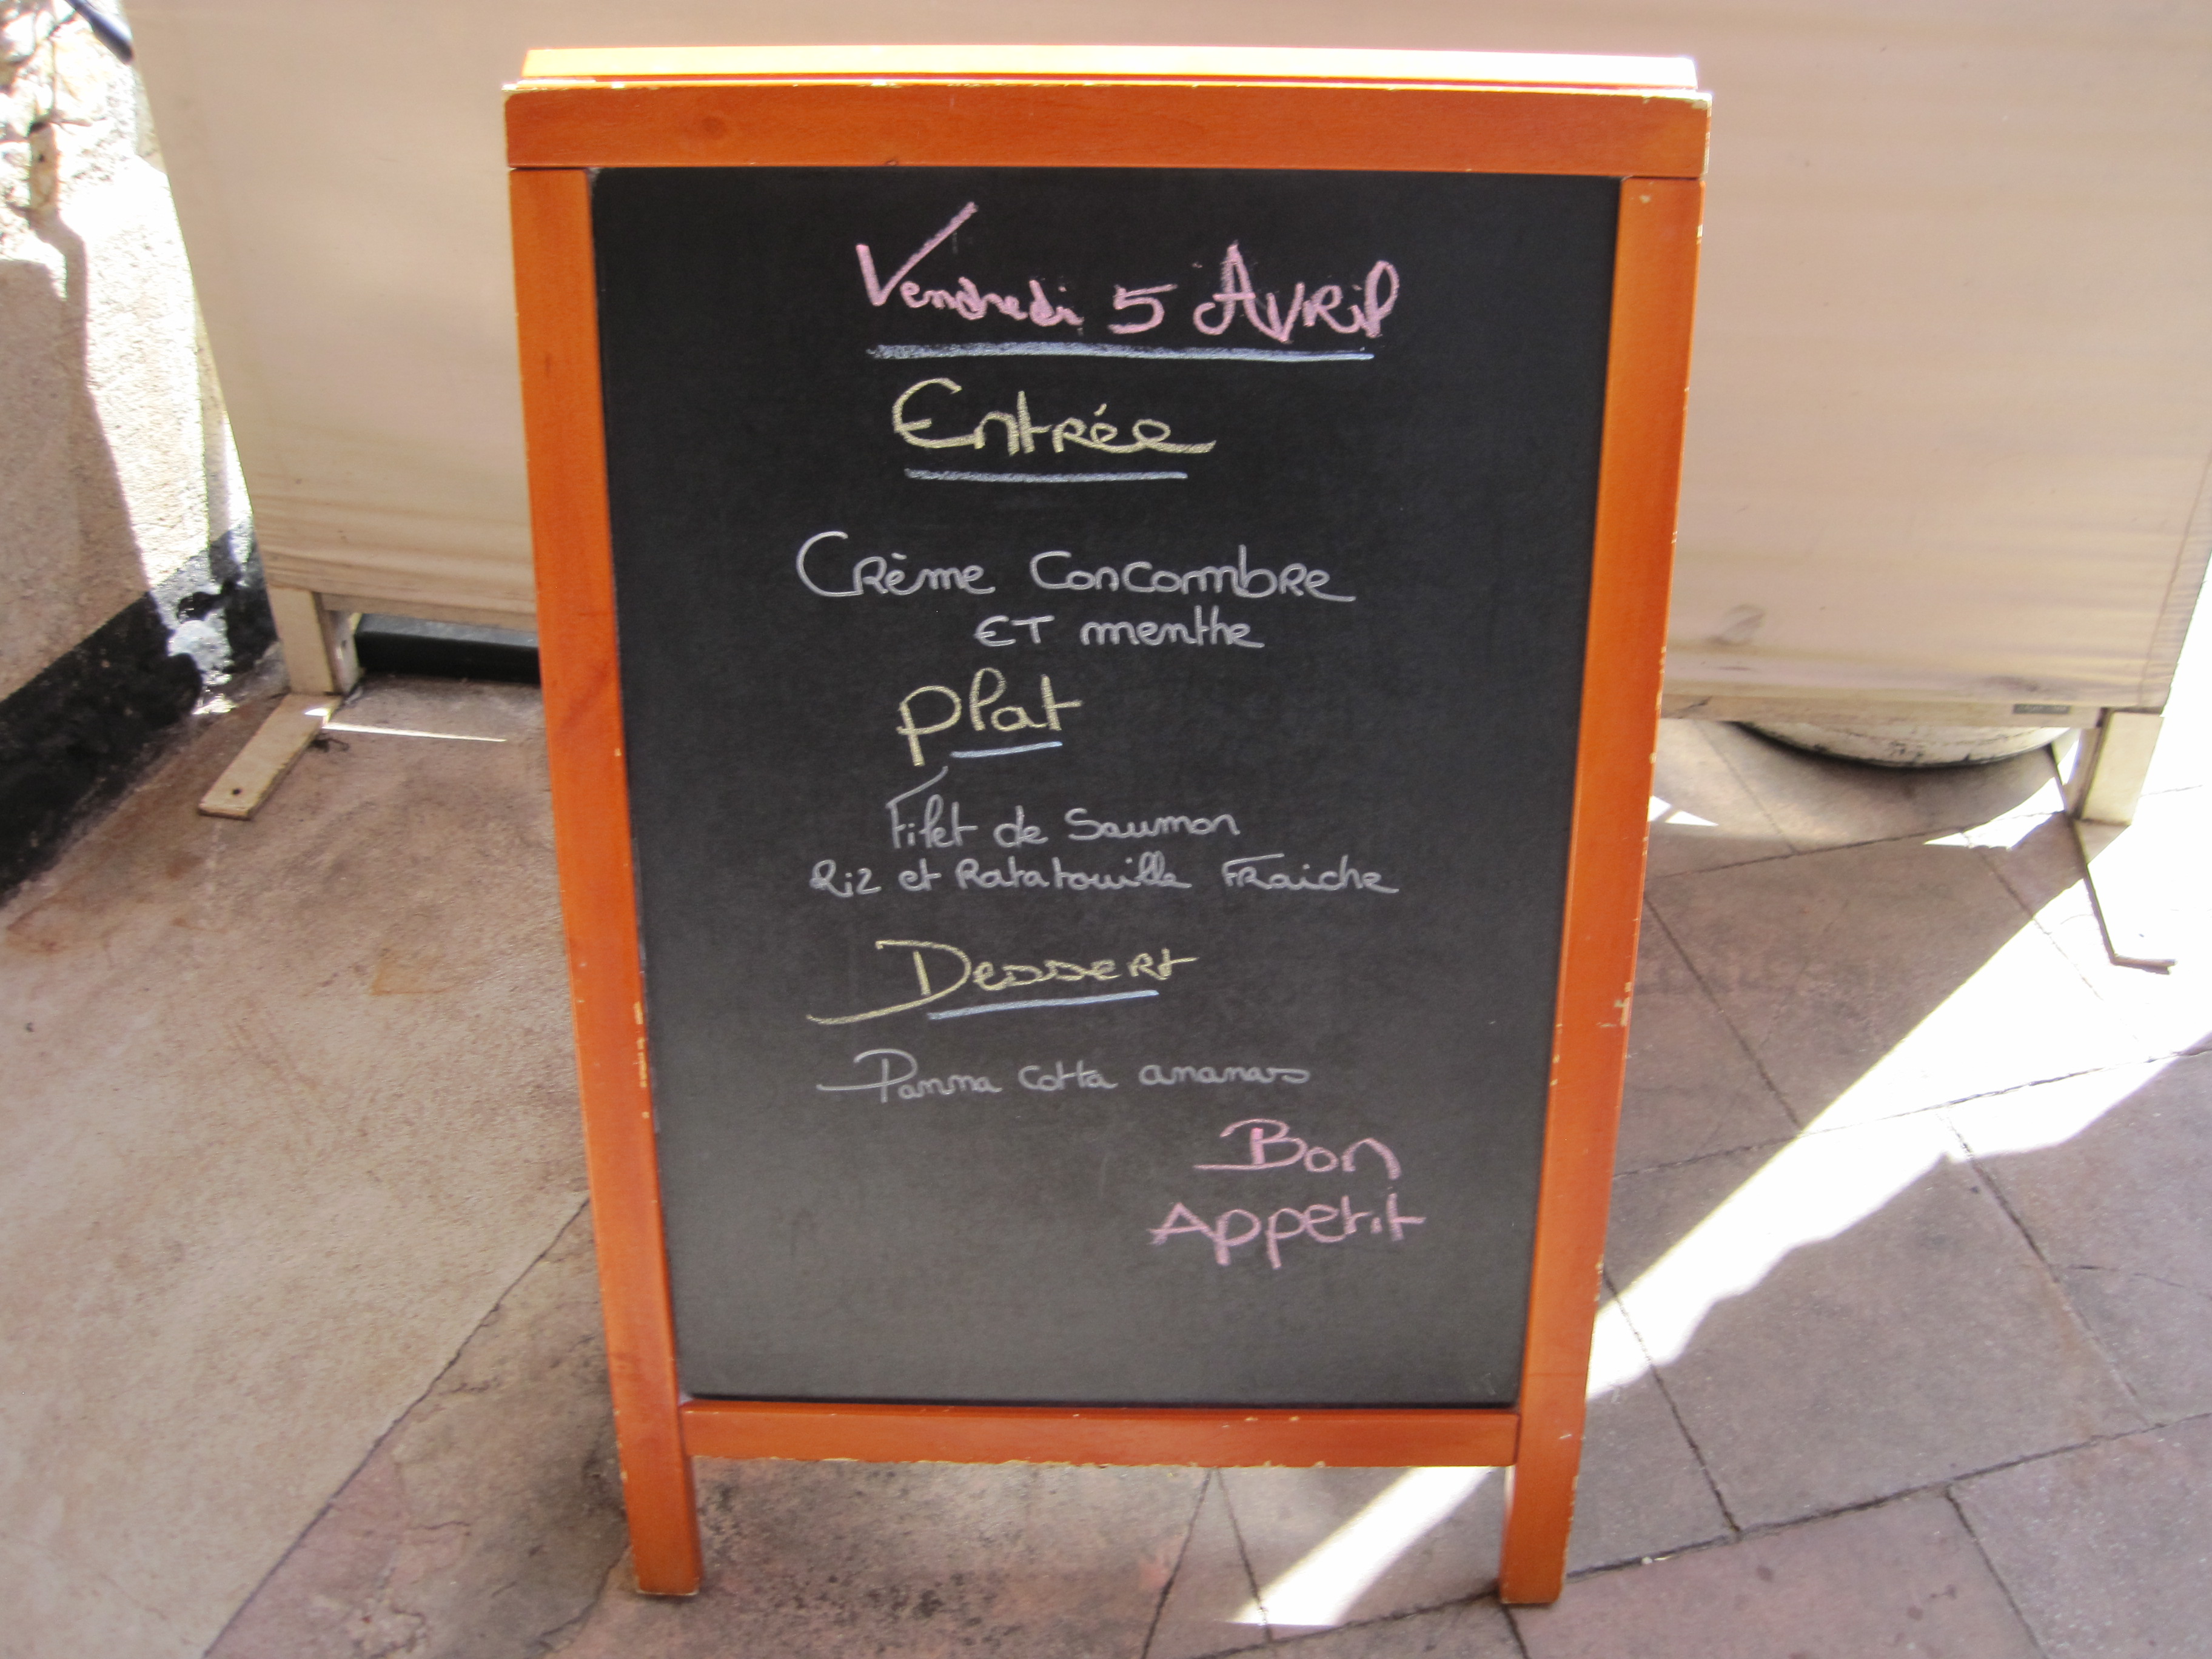 Vendredi 5 Avril
Entrée
Crème Concombre
ET menthe
Plat
Filet de Saumon
Riz et Ratatouille Fraiche
Dessert
Panna Cotta ananas
Bon
Appetit